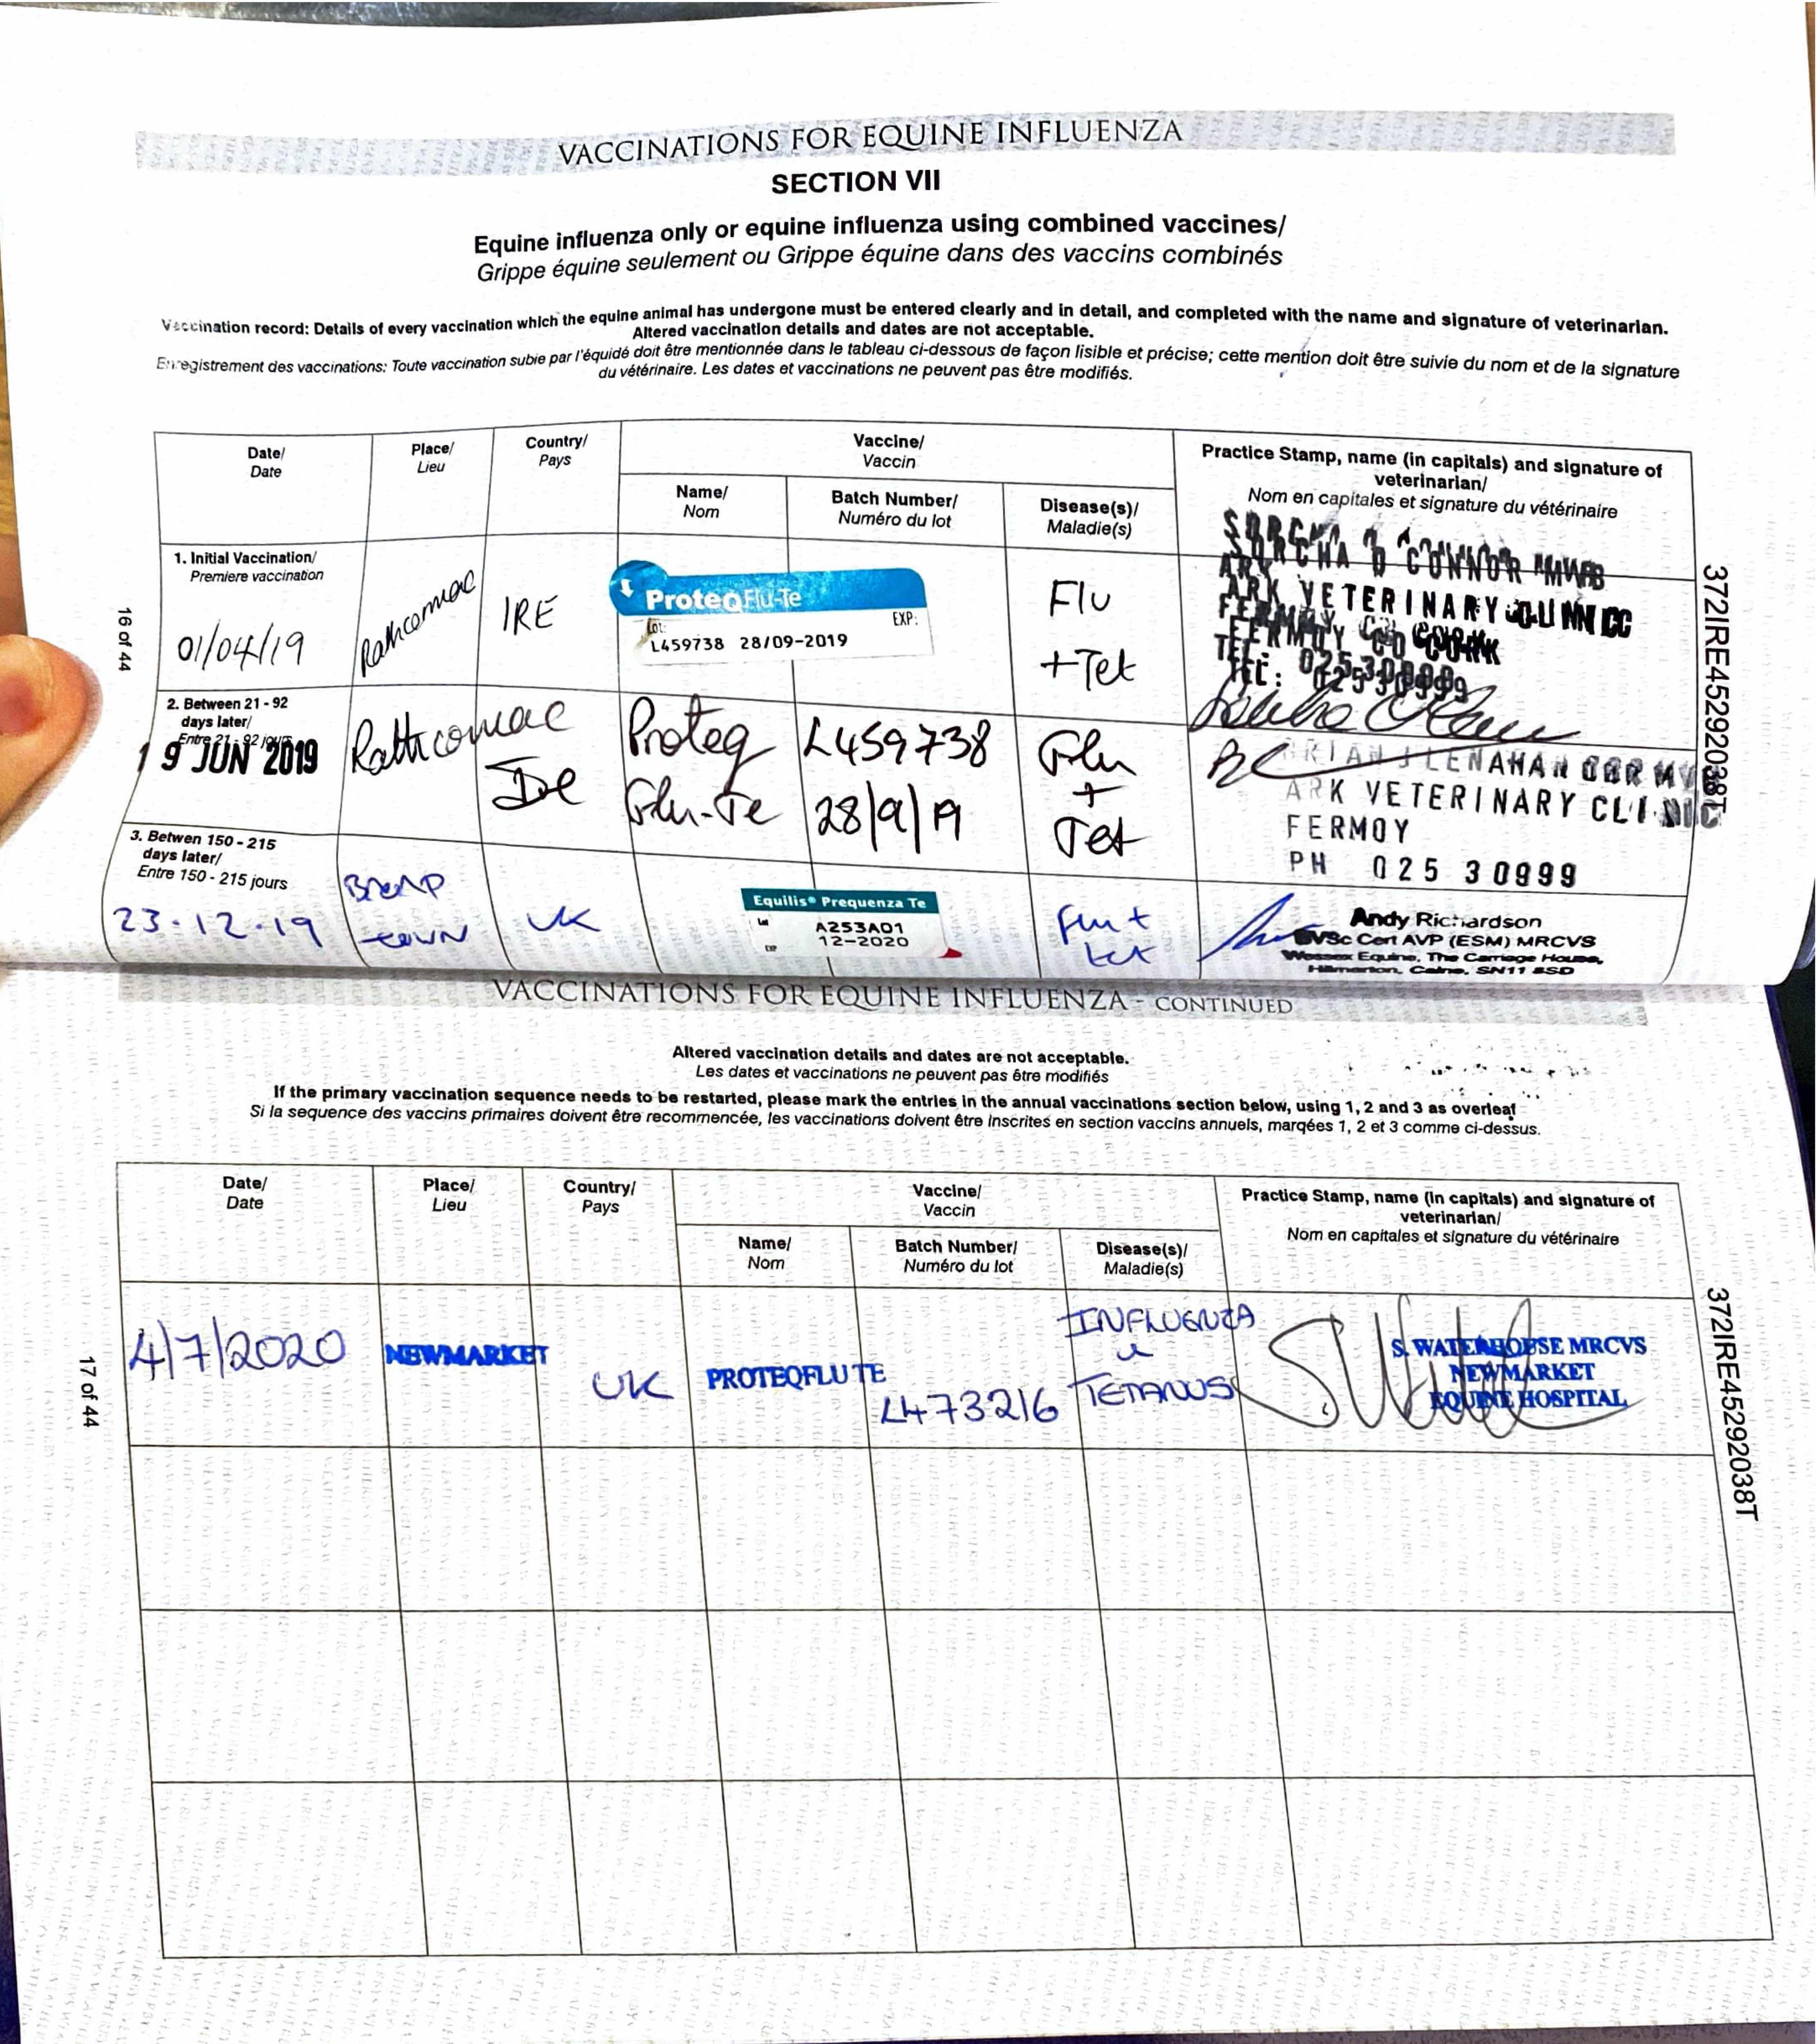 VACCINATIONS FOR EQUINE INFLUENZA
SECTION VII
Equine influenza only or equine influenza using combined vaccines/
Grippe équine seulement ou Grippe équine dans des vaccins combinés
Vaccination record: Details of every vaccination which the equine animal has undergone must be entered clearly and in detail, and completed with the name and signature of veterinarian.
Altered vaccination details and dates are not acceptable.
Enregistrement des vaccinations: Toute vaccination subie par l'équidé doit être mentionnée dans le tableau ci-dessous de façon lisible et précise; cette mention doit être suivie du nom et de la signature
du vétérinaire. Les dates et vaccinations ne peuvent pas être modifiés.
Date/
Date
Place/
Lieu
Country/
Pays
Vaccine/
Vaccin
Name/
Nom
Batch Number/
Numéro du lot
Disease(s)/
Maladie(s)
Practice Stamp, name (in capitals) and signature of
veterinarian/
Nom en capitales et signature du vétérinaire
1. Initial Vaccination/
Premiere vaccination
01/04/19
Rathcormac
IRE
ProteqFlu-Te
Lot:
EXP:
L459738 28/09-2019
Flu
+Tet
SORCHA O CONNOR MVB
ARK VETERINARY CLINIC
FERMOY CO CORK
TEL: 025 30999
2. Between 21 - 92
days later/
Entre 21 - 92 jours
19 JUN 2019
Rathcormac
Ire
Proteq
Flu-Te
L459738
28/9/19
Flu
+
Tet
BRIAN J LENAHAN
ARK VETERINARY CLINIC
FERMOY
PH 025 30999
3. Betwen 150 - 215
days later/
Entre 150 - 215 jours
23.12.19
UK
Equilis® Prequenza Te
Lot
A253A01
EXP
12-2020
Flu +
tet
Andy Richardson
BVSc Cert AVP (ESM) MRCVS
Wessex Equine, The Carriage House,
Hilmarton, Calne, SN11 8SD
16 of 44
372IRE45292038T
VACCINATIONS FOR EQUINE INFLUENZA - CONTINUED
Altered vaccination details and dates are not acceptable.
Les dates et vaccinations ne peuvent pas être modifiés
If the primary vaccination sequence needs to be restarted, please mark the entries in the annual vaccinations section below, using 1, 2 and 3 as overleaf
Si la sequence des vaccins primaires doivent être recommencée, les vaccinations doivent être inscrites en section vaccins annuels, marqées 1, 2 et 3 comme ci-dessus.
Date/
Date
Place/
Lieu
Country/
Pays
Vaccine/
Vaccin
Name/
Nom
Batch Number/
Numéro du lot
Disease(s)/
Maladie(s)
Practice Stamp, name (in capitals) and signature of
veterinarian/
Nom en capitales et signature du vétérinaire
4/7/2020
NEWMARKET
UK
PROTEQFLU TE
L473216
INFLUENZA
TETANUS
S. WATERHOUSE MRCVS
NEWMARKET
EQUINE HOSPITAL
17 of 44
372IRE45292038T